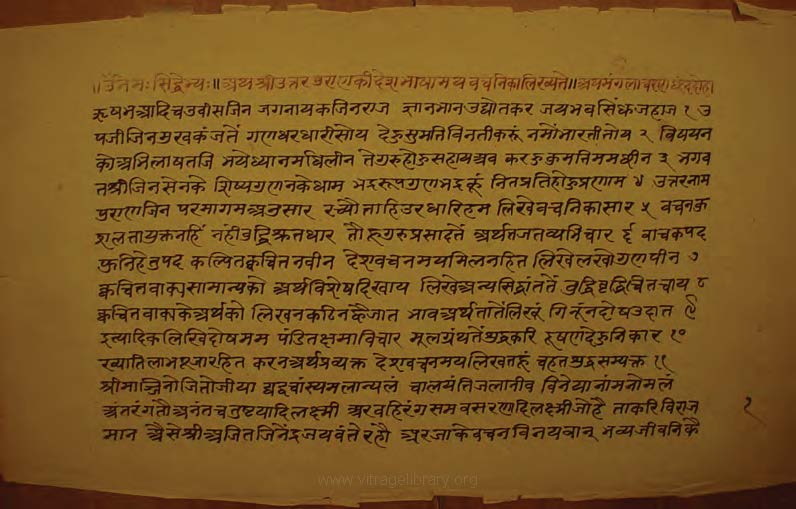 ॥ॐ नमः सिद्धेभ्यः॥ अथ श्री उत्तरपुराण की देशभाषामय वचनिका लिख्यते॥ अथ मंगलाचरण छंद दोहा
ऋषभ आदि चउवीस जिन जगनायक जिनराज ज्ञान भान उद्योतकर जय भवसिंधु जहाज १ उ
पजी जिनमुख कंजतें गणधर धारी सोय देहु सुमति विनती करूं नमों भारती तोय २ विषयन
को अभिलाष तजि भये ध्यान मधि लीन ते गुरु होहु सहाय अब करहु कुमति मम छीन ३ भगव
त श्री जिनसेन के शिष्य गुणन के धाम भद्ररूप गुणभद्र कूं नित प्रति होहु प्रणाम ४ उत्तर नाम
पुराण जिन परमागम अनुसार रच्यौ ताहि उर धारि हम लिखें वचनिका सार ५ वचन कु
शलता युक्त नहिं नंही बुद्धि श्रुत धार तौहू गुरु प्रसादतें अर्थ तजत व्यभिचार ६ वाचक पद
फुनि हेतु पद कल्पित क्वचित नवीन देशवचनमय मिलन हित लिखे लखो गुण पीन ७
क्वचित वाक्य सामान्य को अर्थ विशेष दिखाय लिखें अन्य सिद्धांततें बुद्धि वृद्धि चित चाय ८
क्वचित वाक्य के अर्थ को लिखन कठिन ह्वै जात भाव अर्थ तातें लिखूं गिनूं न दोष उदात्त ९
इत्यादिक लखि दोष मम पंडित क्षमा विचार मूल ग्रंथतें शुद्ध करि दूषण देहु निकार १०
ख्याति लाभ पूजा रहित करन अर्थ प्रव्यक्त देशवचनमय लिखत हूं बहुत शुद्ध सम्यक्त ११
श्रीमान् जिनो जितो जीया द्यद्वचांस्यमलान्यलं क्षालयंति जलानीव विनेयानां मनोमलं
अंतरंग तौ अनंत चतुष्टयादि लक्ष्मी अर वहिरंग समवसरणादि लक्ष्मी जो है ताकरि विराज
मान अैसे श्री अजित जिनेंद्र जयवंते रहौ अर जाके वचन विनयवान् भव्य जीवनि कै
१
www.vitragelibrary.org